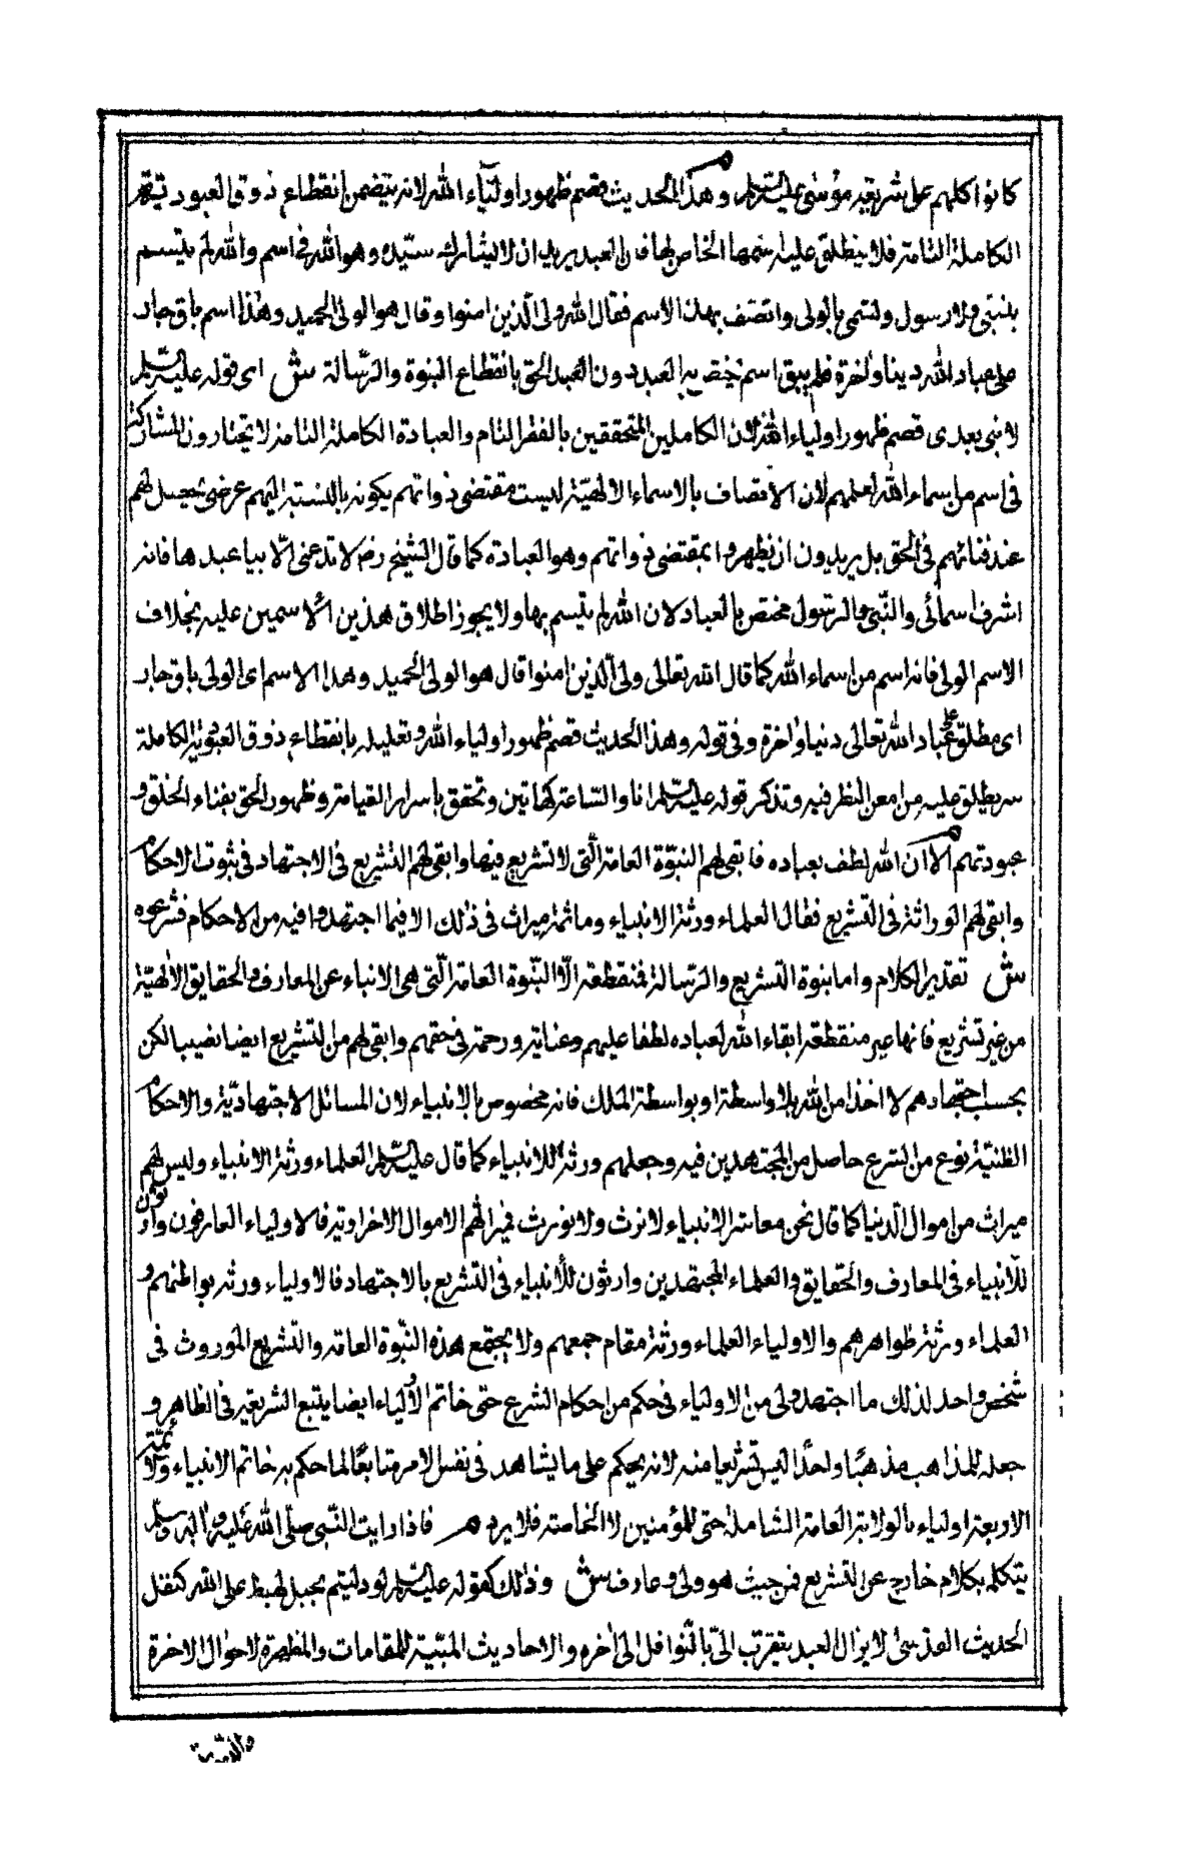 كانوا كلهم على شريعة موسى عليه السلم م وهذا الحديث قصم ظهور اولياء الله لانه يتضمن انقطاع ذوق العبودية
الكاملة التامة فلا ينطلق عليه اسمها الخاص بها فان العبد يريد ان لا يشارك سيّده وهو الله في اسم والله لم يتسم
بنبيّ ولا رسول وتسمى بالولى واتصف بهذا الاسم فقال الله ولى الّذين امنوا وقال هو الولى الحميد وهذا اسم باق جار
على عباد الله دنيا واخرة فلم يبق اسم يختص به العبد دون الحق بانقطاع النبوة والرّسالة ش اى قوله عليه السلم
لا نبى بعدى قصم ظهور اولياء الله لان الكاملين المتحققين بالفقر التام والعبادة الكاملة التامة لا يختارون المشاركة
فى اسم من اسماء الله لعلمهم لان الاتصاف بالاسماء الالهيّة ليست مقتضى ذواتهم يكونه بالنسبة اليهم عرضى يحصل لهم
عند فنائهم فى الحق بل يريدون ان يظهروا بمقتضى ذواتهم وهو العبادة كما قال الشيخ رض لا تدعنى الّا بيا عبدها فانه
اشرف اسمائى والنّبى والرسول مختص بالعباد لان الله لم يتسم بها ولا يجوز اطلاق هذين الاسمين عليه بخلاف
الاسم الولى فانه اسم من اسماء الله كما قال الله تعالى ولى الّذين امنوا قال هو الولى الحميد وهذا الاسم اى الولى باق جار
اى مطلق على عباد الله تعالى دنيا واخرة وفى قوله وهذا الحديث قصم ظهور اولياء الله وتعليله بانقطاع ذوق العبودية الكاملة
سر يطلع عليه من امعن النظر فيه وتذكر قوله عليه السلم انا والساعة كهاتين وتحقق باسرار القيامة وظهور الحق بفناء الخلق و
عبودتهم م الا ان الله لطف بعباده فابقى لهم النبوّة العامة الّتى لا تشريع فيها وابقى لهم التشريع فى الاجتهاد فى ثبوت الاحكام
وابقى لهم الوراثة فى التشريع فقال العلماء ورثة الانبياء وما ثمة ميراث فى ذلك الا فيما اجتهدوا فيه من الاحكام فشرعوه
ش تقدير الكلام واما نبوة التشريع والرّسالة فمنقطعة الّا النّبوة العامة الّتى هى الانباء عن المعارف والحقايق الالهيّة
من غير تشريع فانها غير منقطعة ابقاء الله لعباده لطفا عليهم وعناية ورحمة فى حقهم وابقى لهم من التشريع ايضا نصيبا لكن
بحسب اجتهادهم لا اخذا من الله بلا واسطة او بواسطة الملك فانه مخصوص بالانبياء لان المسائل الاجتهاديّة والاحكام
الظنيّة نوع من الشرع حاصل من المجتهدين فيه وجعلهم ورثة للانبياء كما قال عليه السلم العلماء ورثة الانبياء وليس لهم
ميراث من اموال الدنيا كما قال نحن معاشر الانبياء لا نرث ولا نورث فميراثهم الاموال الاخراوية فالاولياء العارفون وارثون
للانبياء فى المعارف والحقايق والعلماء المجتهدين وارثون للانبياء فى التشريع بالاجتهاد فالاولياء ورثة بواطنهم و
العلماء ورثة ظواهرهم والاولياء العلماء ورثة مقام جمعهم ولا يجتمع هذه النّبوة العامة والتشريع الموروث فى
شخص واحد لذلك ما اجتهد ولى من الاولياء فى حكم من احكام الشرع حتى خاتم الاولياء ايضا يتبع الشريعة فى الظاهر و
جعله للمذاهب مذهبًا واحدًا ليس تشريعا منه لانه يحكم على ما يشاهد فى نفس الامر متابعًا لما حكم به خاتم الانبياء والائمّة
الاربعة اولياء بالولاية العامة الشاملة حتى للمؤمنين لا الخاصة فلا يرد م فاذا رايت النّبى صلّى الله عليه واله وسلّم
يتكلم بكلام خارج عن التشريع فمن حيث هو ولى وعارف ش وذلك كقوله عليه السلم لو دليتم بحبل لهبط على الله كنقل
الحديث القدسى لا يزال العبد يتقرب الىّ بالنّوافل الى اخره والاحاديث المبيّنة للمقامات والمظهرة لاحوال الاخرة